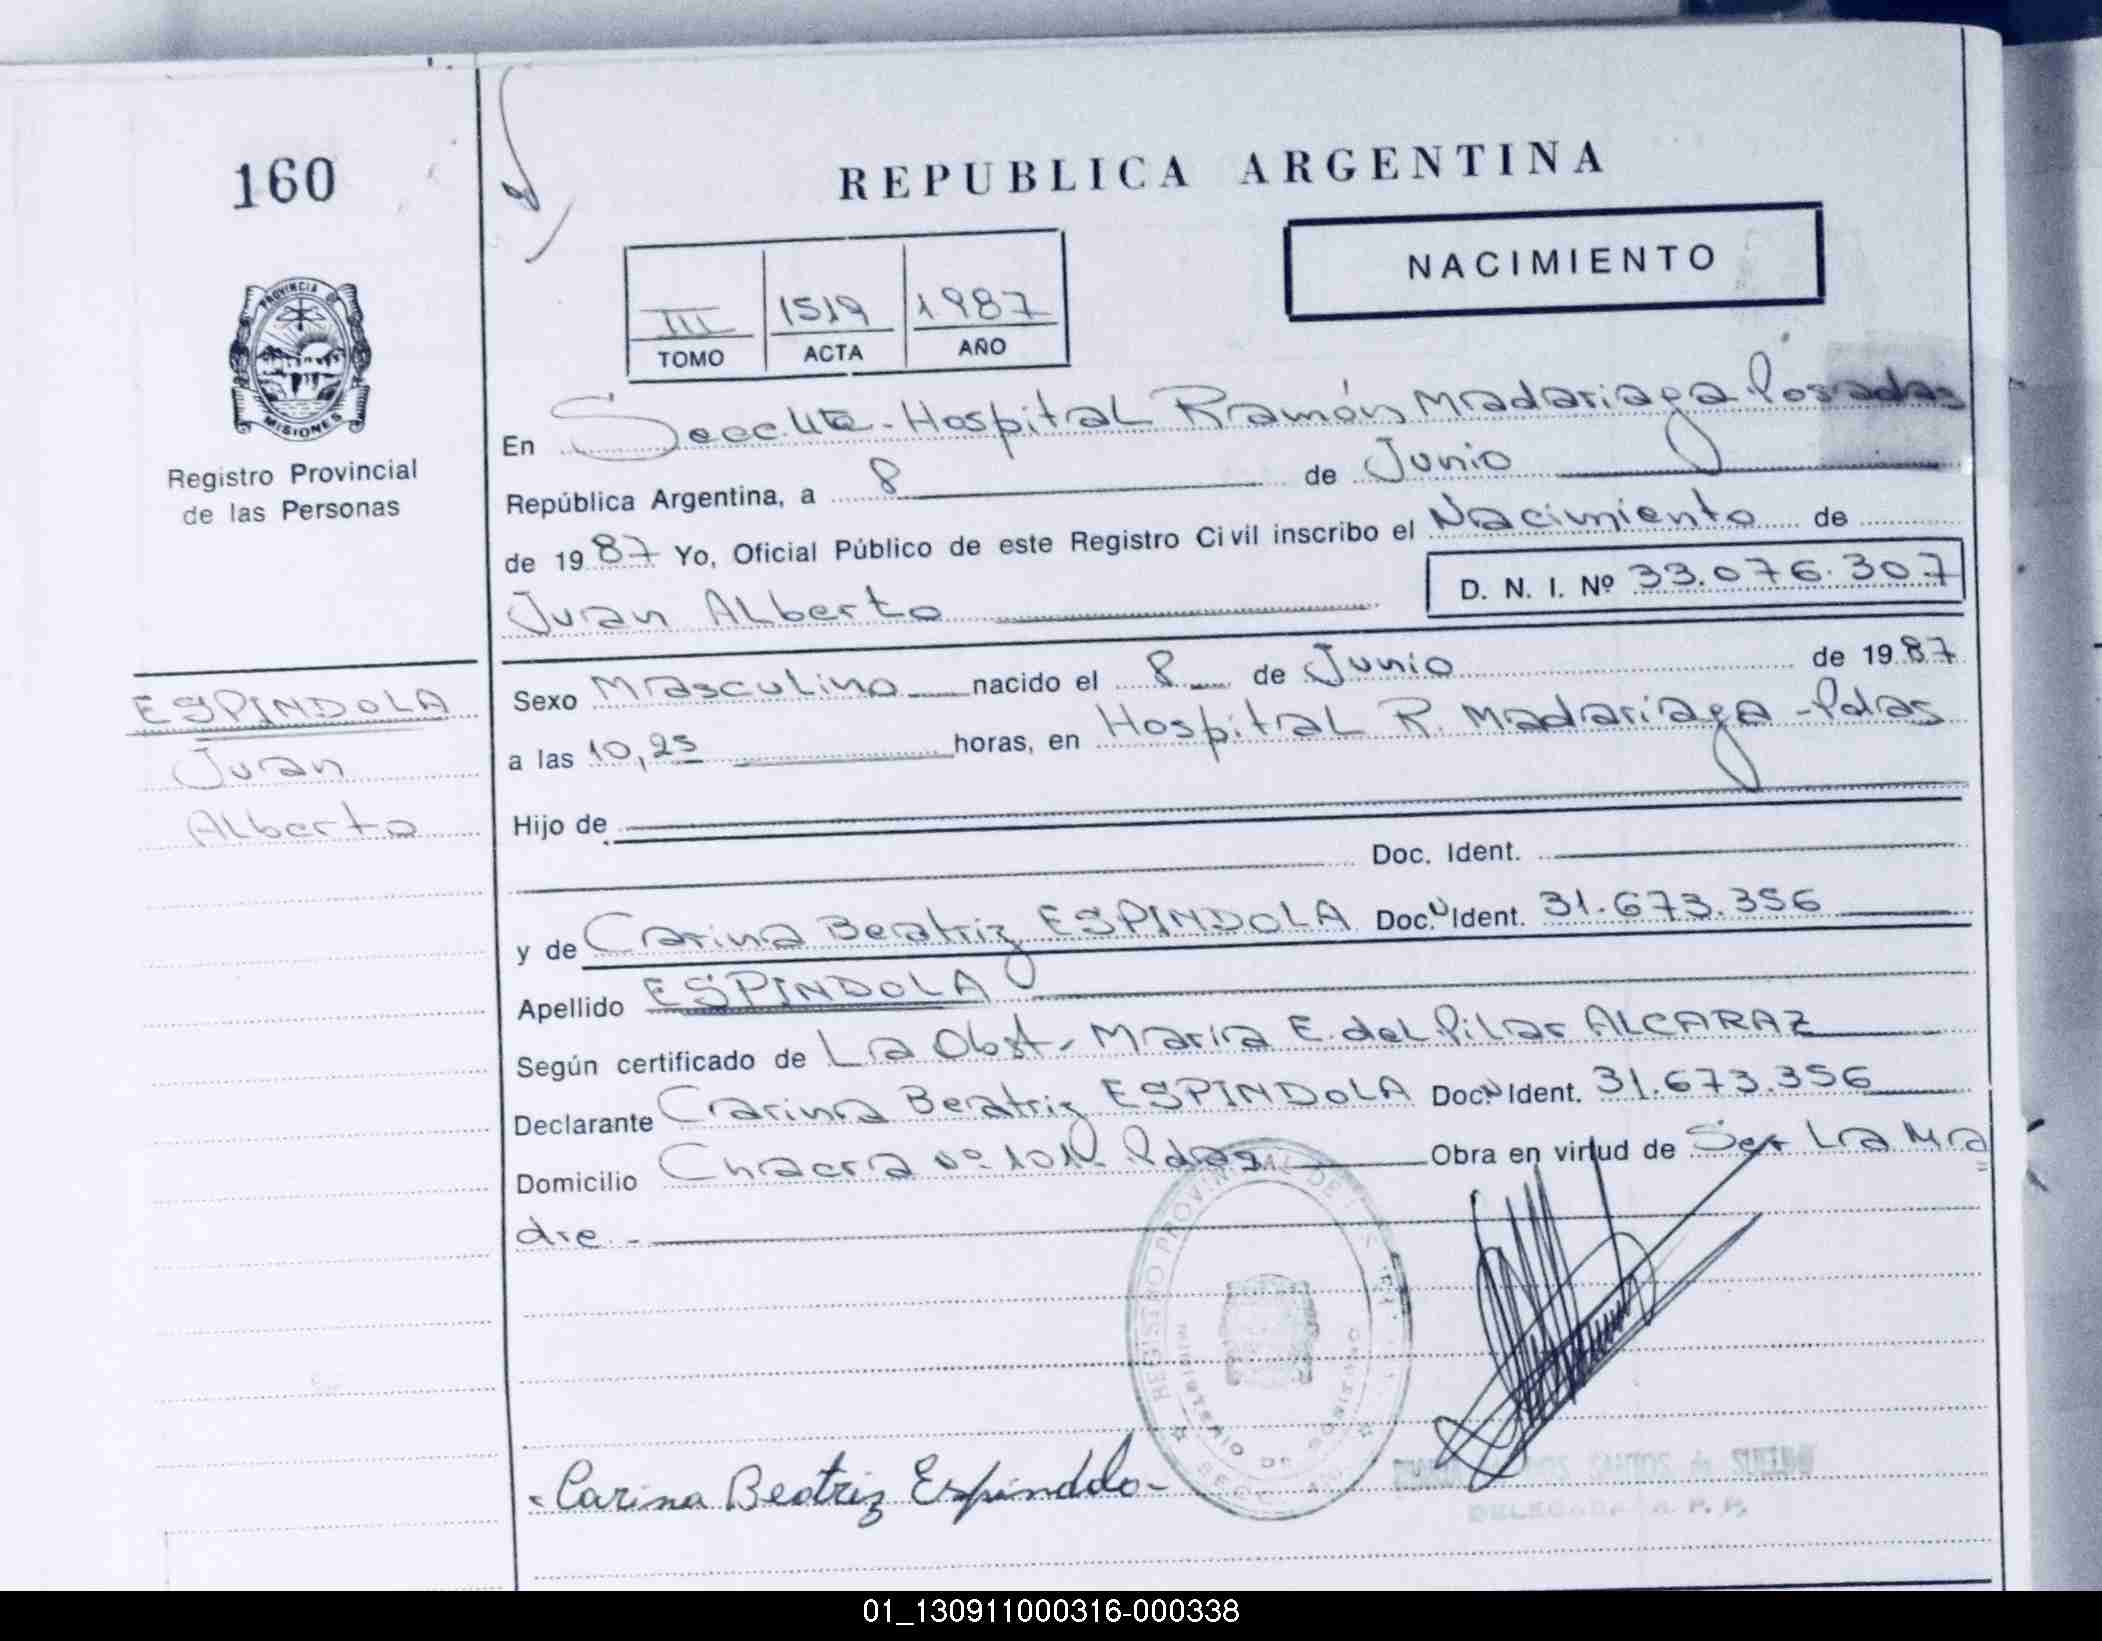 160
PROVINCIA DE
MISIONES
Registro Provincial
de las Personas
ESPINDOLA
Juan
Alberto
REPUBLICA ARGENTINA
NACIMIENTO
III 1519 1987
TOMO ACTA AÑO
En Secc. Hospital Ramón Madariaga Posadas
República Argentina, a 8 de Junio
de 1987 Yo, Oficial Público de este Registro Civil inscribo el Nacimiento de
Juan Alberto D. N. I. Nº 33.076.307
Sexo Masculino nacido el 8 de Junio de 1987
a las 10,25 horas, en Hospital R. Madariaga - Pdas
Hijo de
Doc. Ident.
y de Carina Beatriz ESPINDOLA Doc. Ident. 31.673.356
Apellido ESPINDOLA
Según certificado de La Obst. Maria E. del Pilar ALCARAZ
Declarante Carina Beatriz ESPINDOLA Doc. Ident. 31.673.356
Domicilio Chacra Nº 101 Pdas Obra en virtud de Ser La Ma
dre -
REGISTRO PROVINCIAL DE
MINISTERIO DE GOBIERNO
Carina Beatriz Espindola
01_130911000316-000338